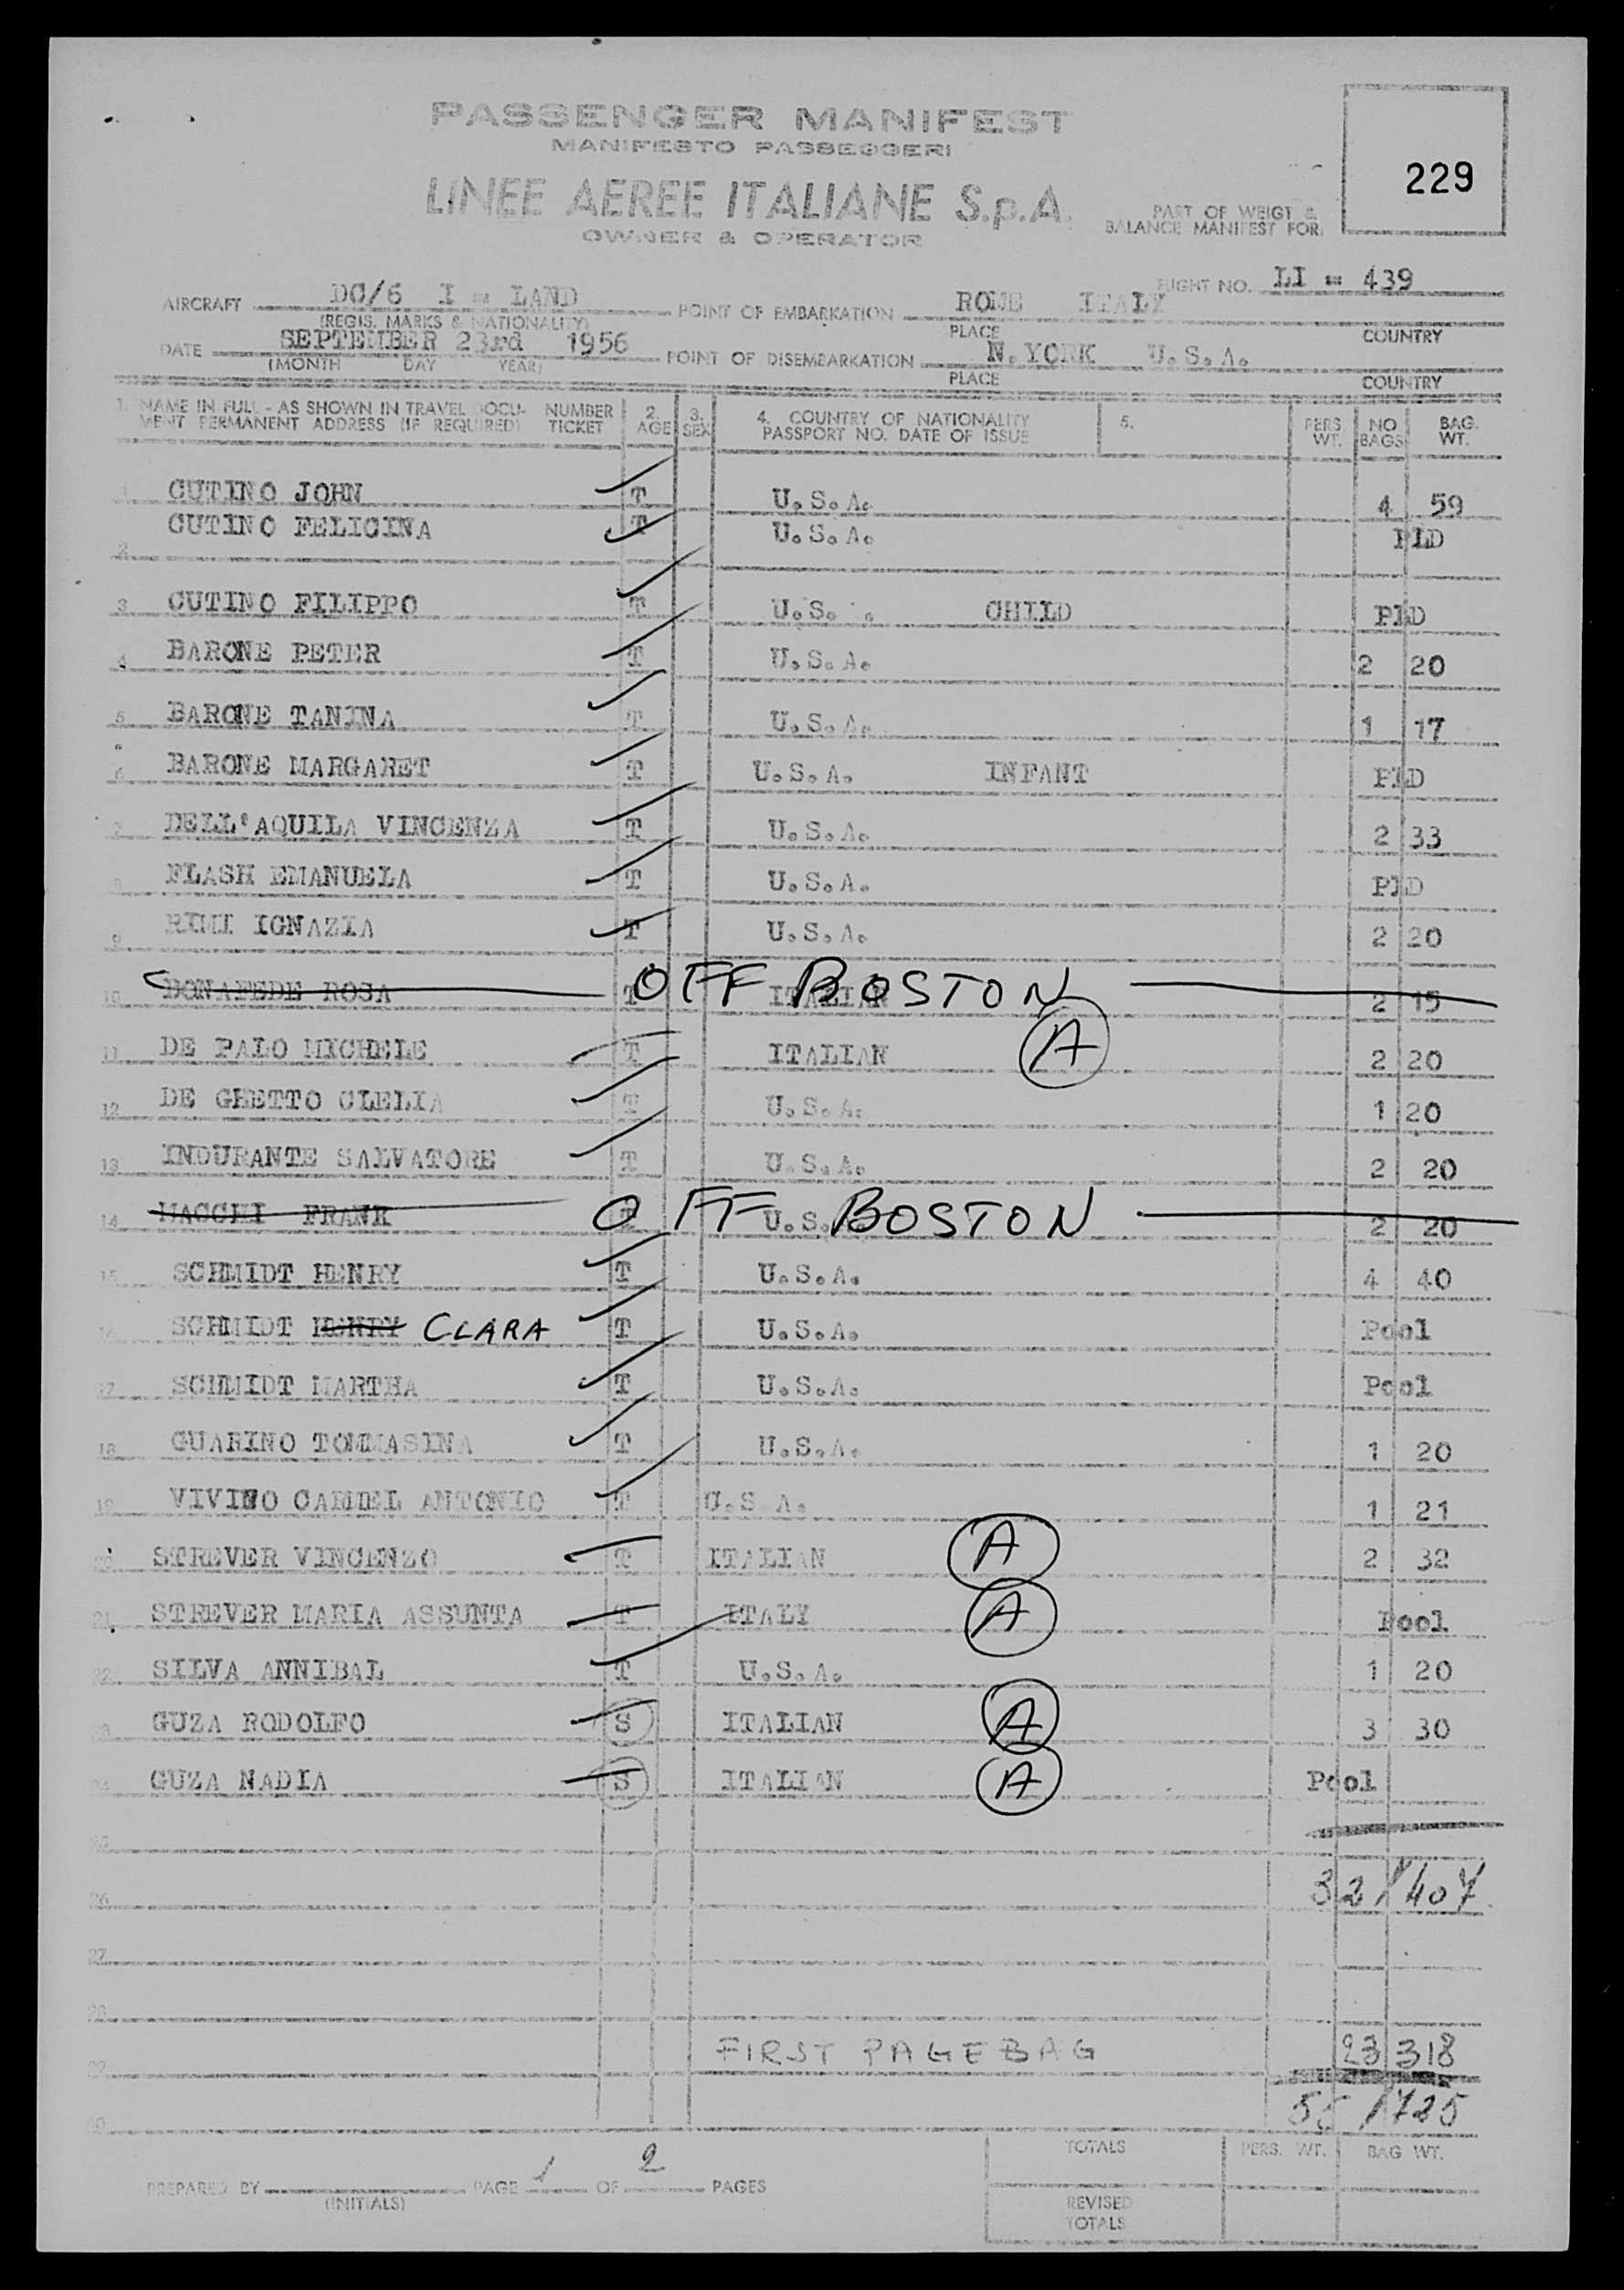 PASSENGER MANIFEST
MANIFESTO PASSEGGERI
LINEE AEREE ITALIANE S.p.A.
OWNER & OPERATOR
PART OF WEIGT &
BALANCE MANIFEST FOR:
229
AIRCRAFT DC/6 I = LAND
(REGIS. MARKS & NATIONALITY)
FLIGHT NO. LI = 439
POINT OF EMBARKATION ROME ITALY
PLACE COUNTRY
DATE SEPTEMBER 23rd 1956
(MONTH DAY YEAR)
POINT OF DISEMBARKATION N.YORK U.S.A.
PLACE COUNTRY
1. NAME IN FULL - AS SHOWN IN TRAVEL DOCU- NUMBER 2. 3. 4. COUNTRY OF NATIONALITY 5. PERS NO BAG.
MENT PERMANENT ADDRESS (IF REQUIRED) TICKET AGE SEX PASSPORT NO. DATE OF ISSUE WT. BAGS WT.
1. CUTINO JOHN T U.S.A. 4 59
2. CUTINO FELICINA T U.S.A. PLD
3. CUTINO FILIPPO T U.S. . CHILD PLD
4. BARONE PETER T U.S.A. 2 20
5. BARONE TANINA T U.S.A. 1 17
6. BARONE MARGARET T U.S.A. INFANT PLD
7. DELL'AQUILA VINCENZA T U.S.A. 2 33
8. FLASH EMANUELA T U.S.A. PLD
9. RIMI IGNAZIA T U.S.A. 2 20
10. BONAFEDE ROSA T OFF BOSTON ITALIAN 2 15
11. DE PALO MICHELE T ITALIAN A 2 20
12. DE GHETTO CLELIA T U.S.A. 1 20
13. INDURANTE SALVATORE T U.S.A. 2 20
14. MACCHI FRANK T OFF BOSTON U.S. 2 20
15. SCHMIDT HENRY T U.S.A. 4 40
16. SCHMIDT HENRY CLARA T U.S.A. Pool
17. SCHMIDT MARTHA T U.S.A. Pool
18. GUARINO TOMMASINA T U.S.A. 1 20
19. VIVINO CARMEL ANTONIO T U.S.A. 1 21
20. STREVER VINCENZO T ITALIAN A 2 32
21. STREVER MARIA ASSUNTA T ITALY A Pool
22. SILVA ANNIBAL T U.S.A. 1 20
23. GUZA RODOLFO S ITALIAN A 3 30
24. GUZA NADIA S ITALIAN A Pool
25.
26. 32/407
27.
28.
29. FIRST PAGE BAG 23 318
30. 55/725
TOTALS PERS. WT. BAG WT.
PREPARED BY PAGE 1 OF 2 PAGES
(INITIALS)
REVISED
TOTALS